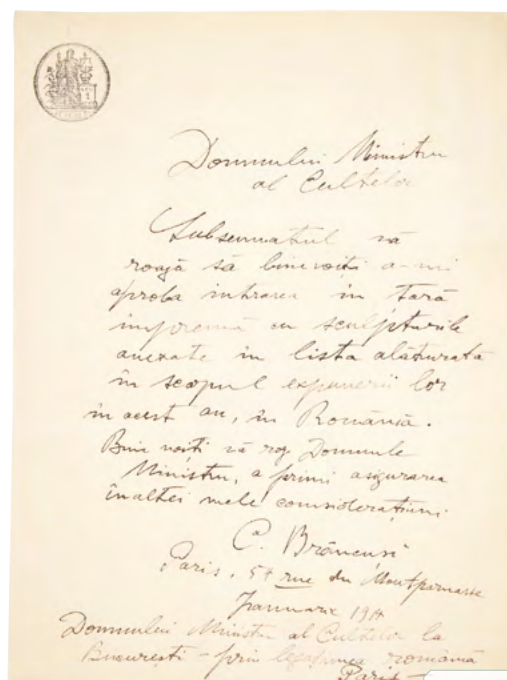 Domnului Ministru
al Cultelor
Subsemnatul vă
roagă să binevoiți a-mi
aproba intrarea în țară
împreună cu sculpturile
anexate in lista alăturată
în scopul expunerii lor
in acest an, în România.
Bine voiți vă rog Domnule
Ministru, a primi asigurarea
înaltei mele considerațiuni
C. Brâncusi
Paris. 54 rue du Montparnasse
Januarie
Domnului Ministru al Cultelor la
București - prin legațiunea română
Paris -